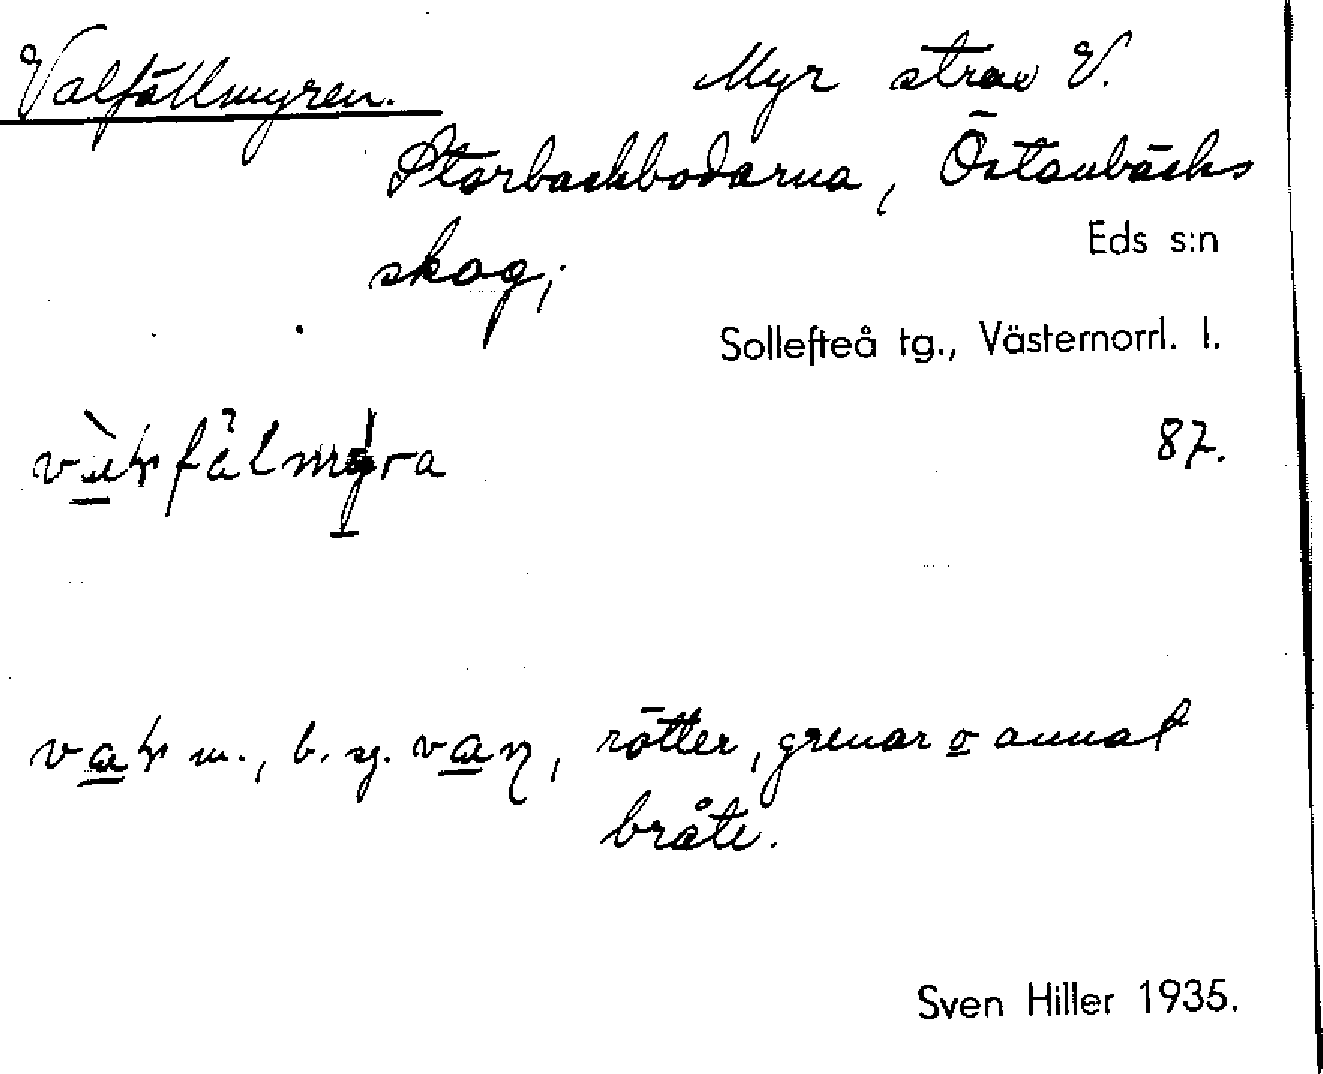 Valfällmyren. Myr strax V.
Storbackbodarna, Östanbäcks
skog;
Eds s:n
Sollefteå tg., Västernorrl. l.
87.
m., b. sg. rötter, grenar o annat
bråte.
Sven Hiller 1935.